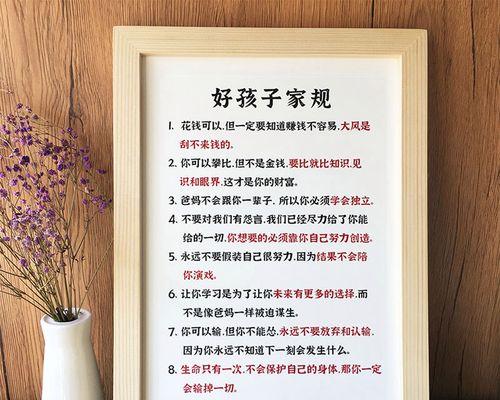 好孩子家规
1. 花钱可以.但一定要知道赚钱不容易.大风是
刮不来钱的.
2. 你可以攀比.但不是金钱.要比就比知识.见
识和眼界.这才是你的财富。
3. 爸妈不会跟你一辈子. 所以你必须学会独立.
4. 不要对我们有怨言.我们已经尽力给了你能
给的一切.你想要的必须靠你自己努力创造。
5. 永远不要假装自己很努力.因为结果不会陪
你演戏。
6. 让你学习是为了让你未来有更多的选择.而
不是像爸妈一样被迫谋生。
7. 你可以输.但你不能怂.永远不要放弃和认输.
因为你永远不知道下一刻会发生什么。
8. 生命只有一次.不会保护自己的身体.那你一定
会输掉一切。